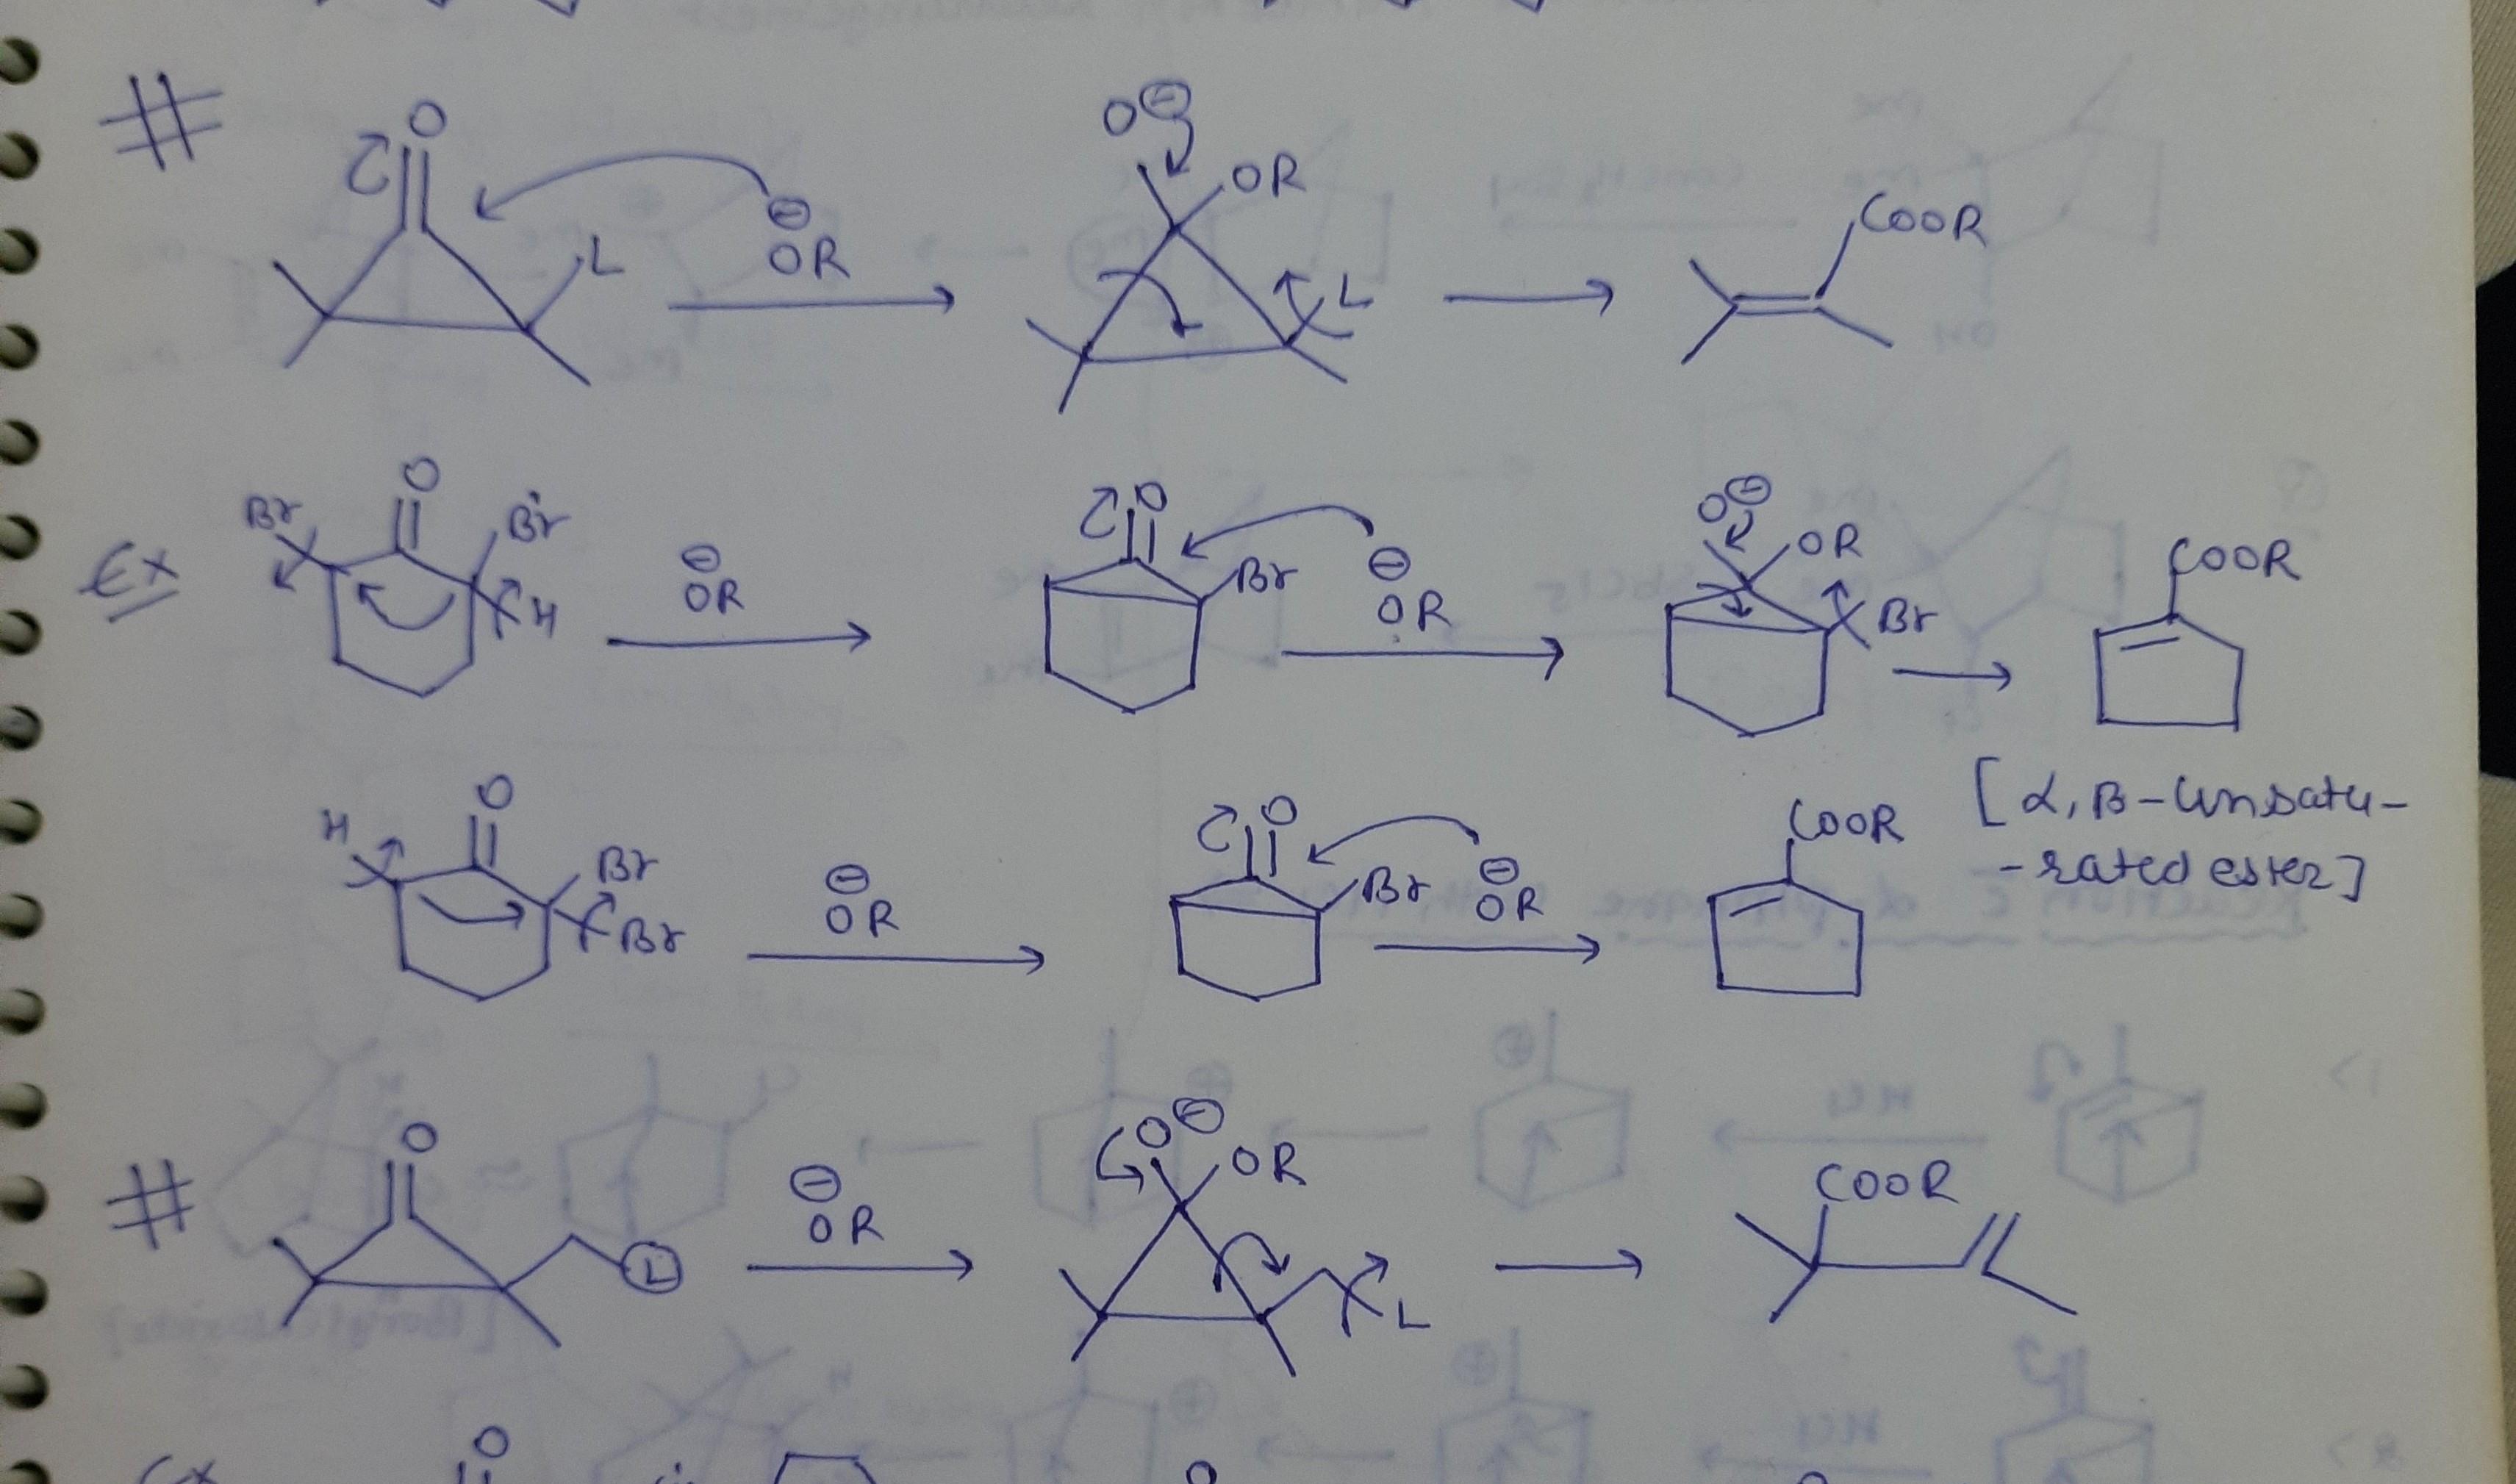 #
O
O⊖
L
⊖
OR
OR
L
COOR
Ex
O
Br
Br
H
⊖
OR
O
Br
⊖
OR
O⊖
OR
Br
COOR
[α, β-Unsatu-
-rated ester]
H
O
Br
Br
⊖
OR
O
Br
⊖
OR
COOR
#
O
L
⊖
OR
O⊖
OR
L
COOR
Ex
O
O
O